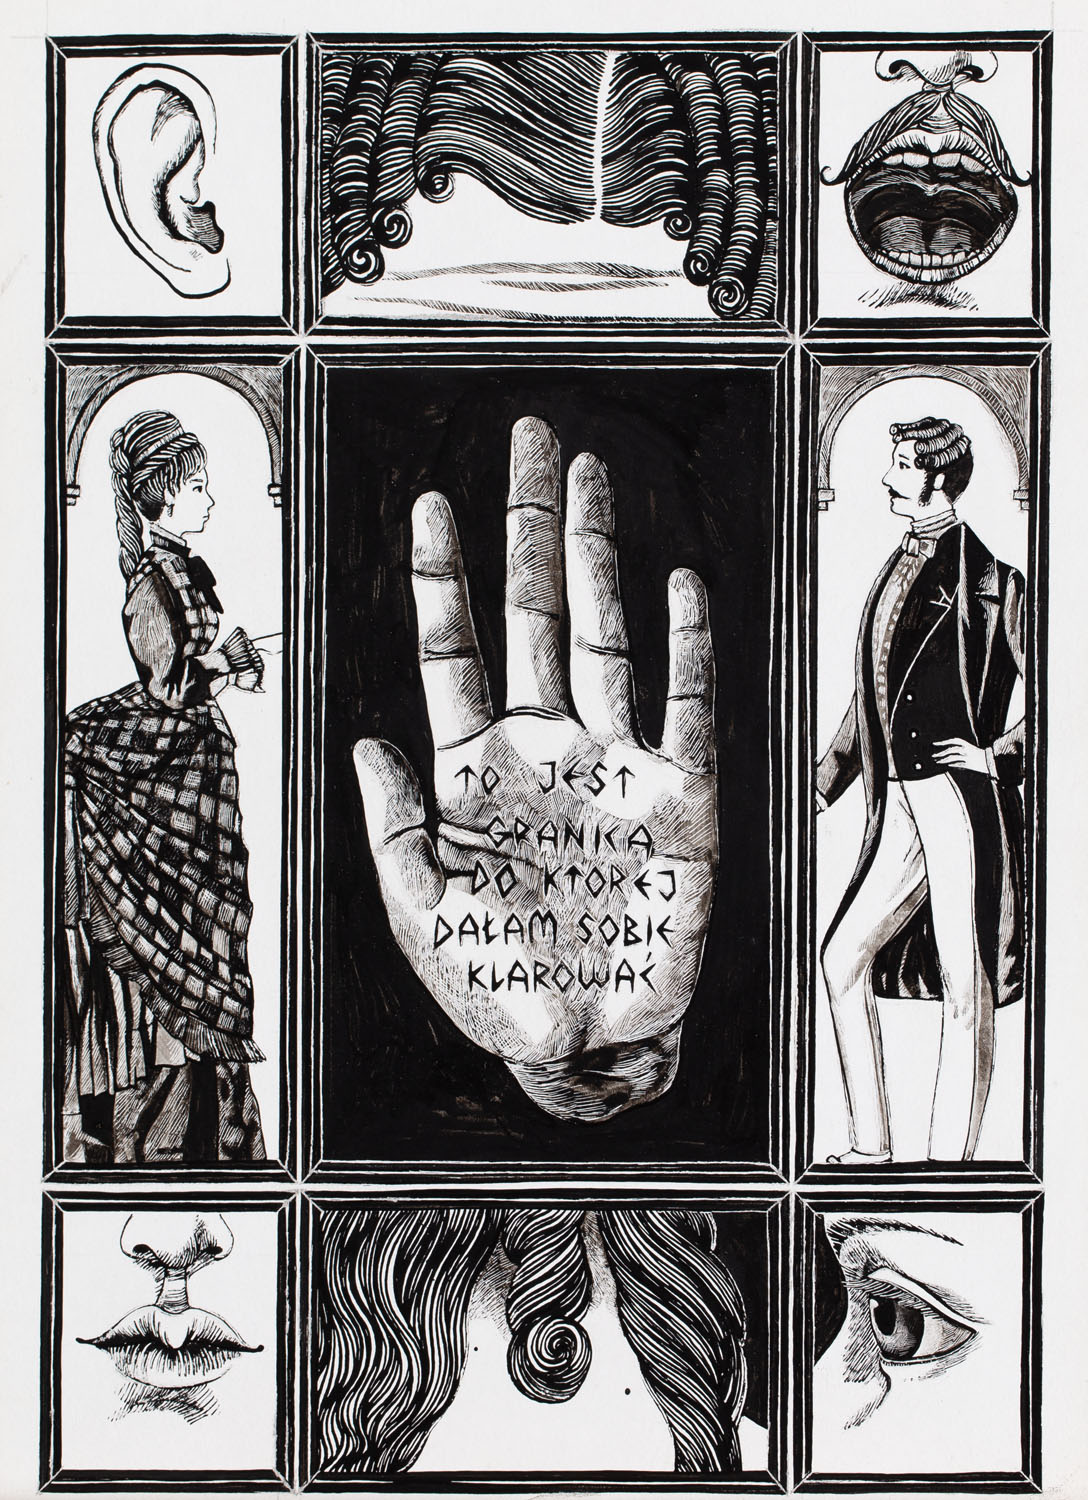 TO JEST
GRANICA
DO KTOREJ
DAŁAM SOBIE
KLAROWAĆ